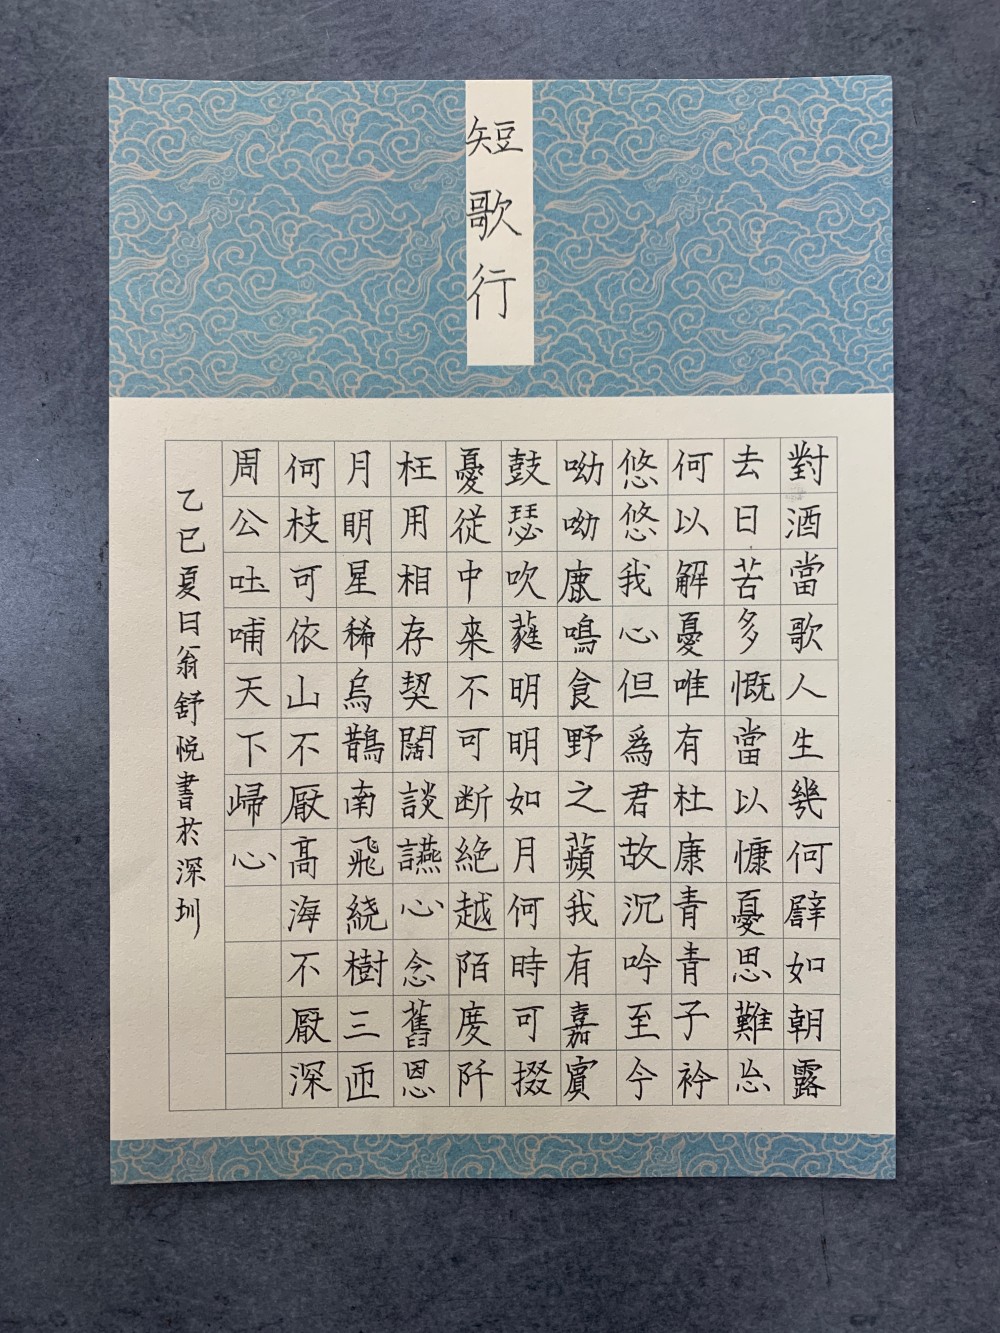 短歌行
對酒當歌人生幾何譬如朝露
去日苦多慨當以慷憂思難忘
何以解憂唯有杜康青青子衿
悠悠我心但爲君故沉吟至今
呦呦鹿鳴食野之蘋我有嘉賓
鼓瑟吹蕤明明如月何時可掇
憂從中來不可断絶越陌度阡
枉用相存契闊談讌心念舊恩
月明星稀烏鵲南飛繞樹三匝
何枝可依山不厭高海不厭深
周公吐哺天下歸心
乙巳夏日翁舒悦書於深圳